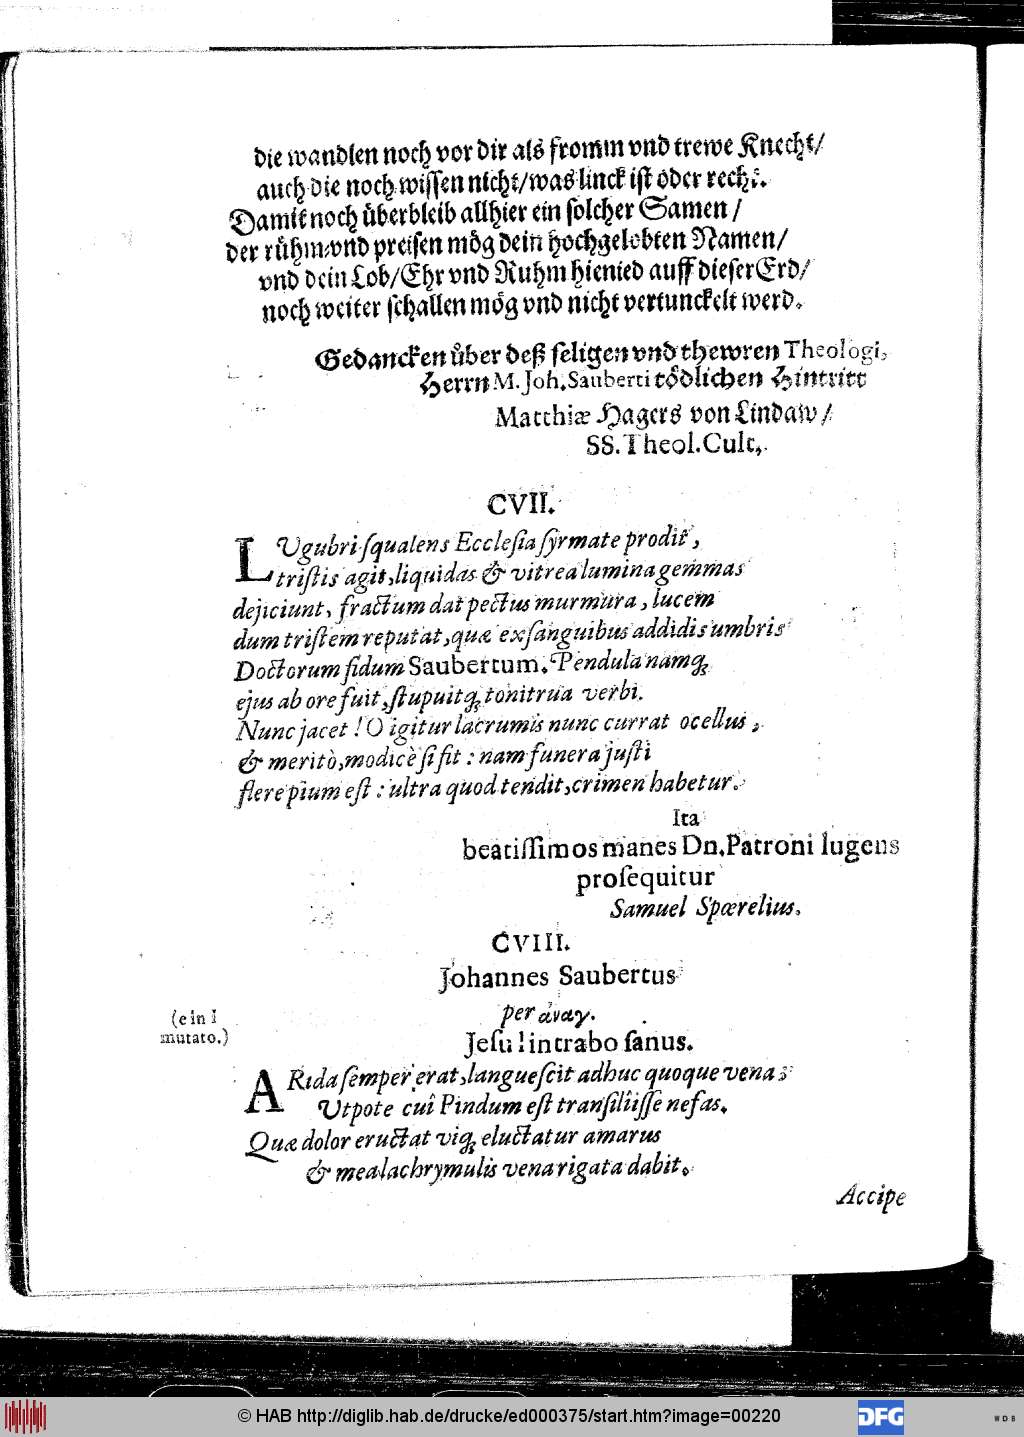 die wandlen noch vor dir als fromm vnd trewe Knecht/
auch die noch wissen nicht/was linck ist oder recht.
Damit noch überbleib allhier ein solcher Samen/
der rühm vnd preisen mög dein hochgelobten Namen/
vnd dein Lob/Ehr vnd Ruhm hienied auff dieser Erd/
noch weiter schallen mög vnd nicht vertunckelt werd.
Gedancken über deß seligen vnd thewren Theologi,
Herrn M. Joh. Sauberti tödlichen Hintritt
Matthiæ Hagers von Lindaw/
SS. Theol. Cult.
CVII.
LVgubri squalens Ecclesia syrmate prodit,
tristis agit, liquidas & vitrea lumina gemmas
dejiciunt, fractum dat pectus murmura, lucem
dum tristem reputat, quæ exsanguibus addidis umbris
Doctorum fidum Saubertum. Pendula namq́;
ejus ab ore fuit, stupuitq́; tonitrua verbi.
Nunc jacet! O igitur lacrumis nunc currat ocellus,
& meritò, modicè si fit: nam funera justi
flere pium est: ultra quod tendit, crimen habetur.
Ita
beatissimos manes Dn. Patroni lugens
prosequitur
Samuel Spærelius.
CVIII.
Johannes Saubertus
per ἀναγ.
(e in i
mutato.)
Jesu! intrabo sanus.
ARida semper erat, languescit adhuc quoque vena:
Vtpote cui Pindum est transiliisse nefas.
Quæ dolor eructat viq́; eluctatur amarus
& mea lachrymulis vena rigata dabit.
Accipe
© HAB http://diglib.hab.de/drucke/ed000375/start.htm?image=00220
DFG
WDB